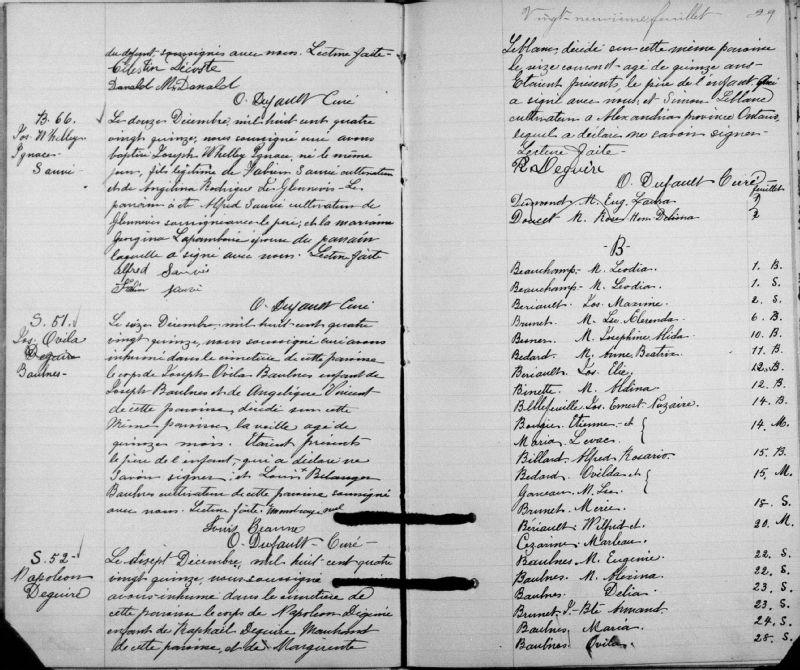 du défunt soussignés avec nous. Lecture faite-
Célestin Décoste
Donald McDonald
O. Dufault Curé
B. 66.
Jos. Whelley
Ignace
Sauvé
Le douze Décembre, mil huit cent quatre
vingt quinze, nous soussigné curé avons
baptisé Joseph Whelley Ignace, né le même
jour, fils légitime de Fabien Sauvé cultivateur
et de Angélina Rodrigue de Glennevis- Le
parrain a été Alfred Sauvé cultivateur de
Glennevis soussigné avec le père; et la marraine
Georgina Lapombarie épouse du parrain
laquelle a signé avec nous. Lecture faite
Alfred Sauvé
Fabien Sauvé
O. Dufault Curé
S. 51.
Jos. Ovila
Deguire
Baulnes-
Le seize Décembre, mil huit cent quatre
vingt quinze, nous soussigné curé avons
inhumé dans le cimetière de cette paroisse
le corps de Joseph Ovila Baulnes enfant de
Joseph Baulnes et de Angélique Vincent
de cette paroisse, décédé sur cette
même paroisse la veille agé de
quinze mois. Etaient présents
le père de l'enfant, qui a déclaré ne
savoir signer; et Louis Bélanger
Baulnes cultivateur de cette paroisse soussigné
avec nous. Lecture faite.
Louis Beaune
O. Dufault- Curé-
S. 52-
Napoleon
Deguire
Le dixsept Décembre, mil huit cent quatre
vingt quinze, nous soussigné
avons inhumé dans le cimetière de
cette paroisse le corps de Napoléon Déguire
enfant de Raphaël Deguire Marchand
de cette paroisse, et de Marguerite
Vingt-neuvième feuillet 29
Leblanc, décédé sur cette même paroisse
le seize courant- agé de quinze ans-
Etaient présents, le père de l'enfant qui
a signé avec nous, et Simon Leblanc
cultivateur à Alexandria province Ontario,
lequel a déclaré ne savoir signer-
Lecture faite-
R. Deguire
O. Dufault Curé
feuillet
Dumond M. Eug. Laura 2
Doucet M. Rose Delima 2
-B-
Beauchamp- M. Leodia. 1. B.
Beauchamp- M. Leodia. 1. S.
Beriault Jos. Maxime 2. S.
Brunet M. Lse. Clerenda 6. B
Besner M. Josephine Alida. 10. B.
Bedard M. Anne Beatrix. 11. B
Beriault Jos. Elie 12. B.
Binette M. Aldina 12. B
Bellefeuille Jos. Ernest Nazaire. 14. B.
Bougie Etienne- et
Maria Levac } 14. M.
Billard Alfred Rosario 15. B
Bedard Ovilda et
Garceau M. Lse } 15. M.
Brunet Merie 18. S.
Bériault Wilfrid et 20. M.
Cezarine Marleau
Baulnes M. Eugenie 22. S.
Baulnes M. Alexina 22. S.
Baulnes Delia 23. S.
Brunet J- Bte Armand 23. S.
Baulnes Maria 24. S.
Baulnes Ovila 28. S.